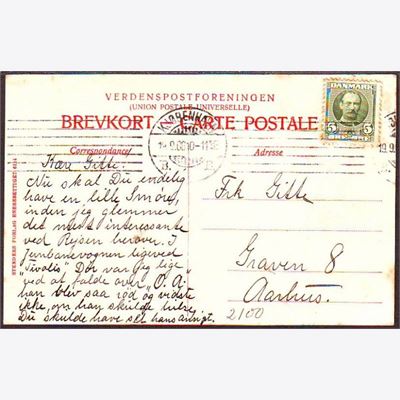 VERDENSPOSTFORENINGEN
(UNION POSTALE UNIVERSELLE)
BREVKORT. CARTE POSTALE
DANMARK
5 5
KJØBENHAVN
B. B.
Correspondance
Adresse
Kær Gitte.
Nu skal Du endelig
have en lille Smøre,
inden jeg glemmer
det mest interessante
ved Rejsen herover. I
Jernbanevognen ligeved
"Tivolis" Dør var jeg lige
ved at falde over "O. A."
han blev saa rød og vidste
ikke om han skulde hilse
Du skulde have set hans ansigt.
Frk Gitte
Graven 8
Aarhus.
2100
STENDERS FORLAG ENEBERETTIGET